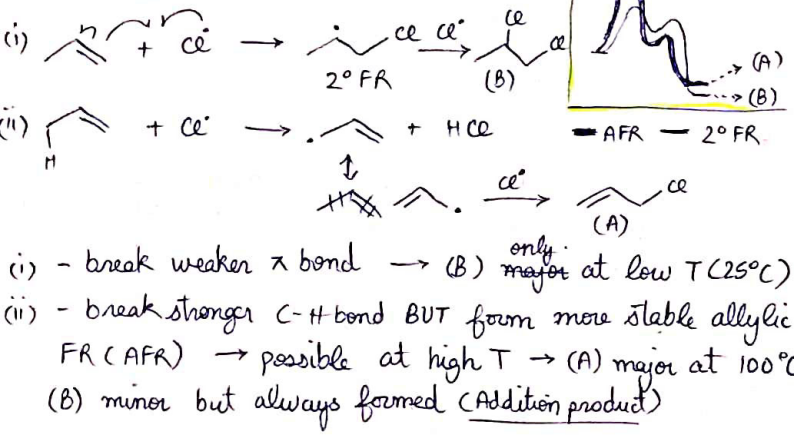 (i) + Cl• → Cl Cl• → Cl Cl
2° FR (B)
(A)
(B)
AFR — 2° FR
(ii) H + Cl• → • + HCl
↕
• Cl• → Cl
(A)
(i) - break weaker π bond → (B) only at low T (25°C)
(ii) - break stronger C-H bond BUT form more stable allylic
FR (AFR) → possible at high T → (A) major at 100°C
(B) minor but always formed (Addition product)